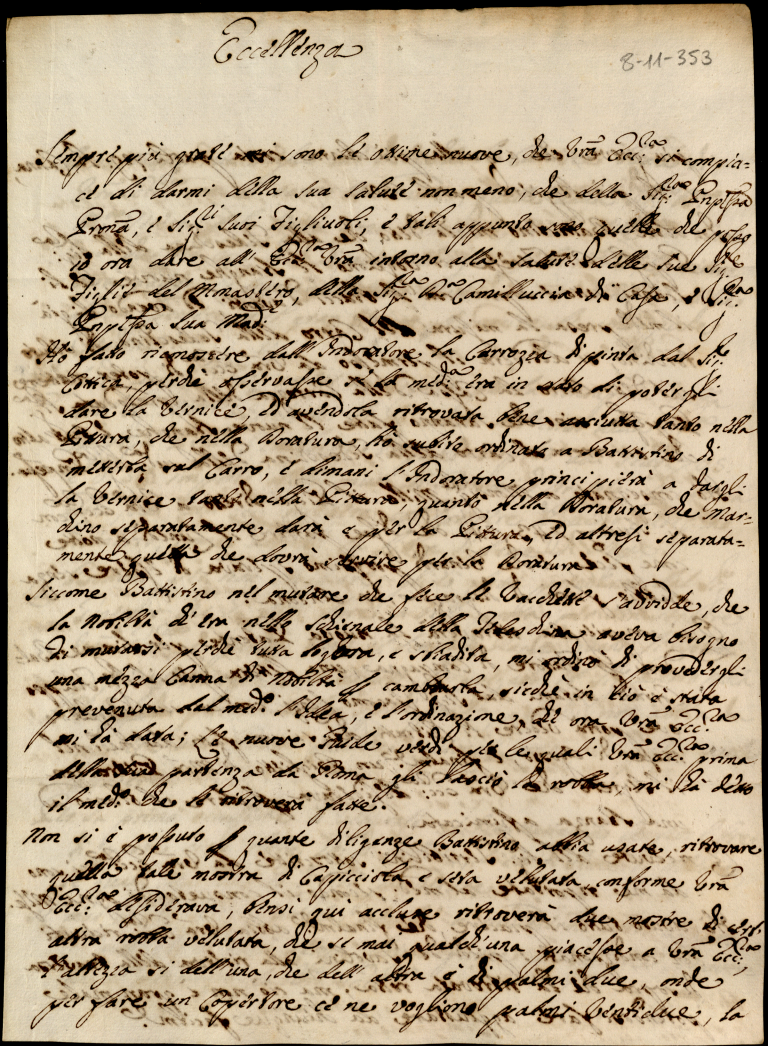 Eccellenza
8-11-353
Sempre più grate mi sono le ottime nuove, che Vra Ecc:za si compia=
ce di darmi della sua salute non meno, che della Sig:ra Pnpessa
Prona, e Sig:ri suoi Figlivoli, e tali appunto sono quelle che posso
io ora dare all' Ecc:za Vra intorno alla salute delle sue Sig:re
Figlie del Monastero, della Sig:ra Da Camilluccia di Casa, e Sig:ra
Pnpessa sua Mad:e
Hò fatto riconoscere dall'Indoratore la Carrozza dipinta dal Sig:
perche osservasse se la med:a era in stato di potergli
dare la Vernice, ed avendola ritrovata bene asciutta tanto nella
Pittura, che nella Doratura, hò subito ordinato a Battistino di
metterla sul Carro, e dimani l'Indoratore principierà a dargli
la Vernice tanto nella Pittura, quanto nella Doratura, che Mar=
chino separatamente darà e per la Pittura, ed altresì separata=
mente quella che dovrà servire per la Doratura.
Siccome Battistino nel mutare che fece le Vacchette s'avvidde, che
la nobiltà ch'era nello schienale della aveva bisogno
di mutarsi perche tutta logora, e sbiadita, mi ordinò di provedergli
una mezza Canna di nobiltà p cambiarla, sicchè in ciò è stata
prevenuta dal med:o l'Idea, e l'ordinazione, che ora Vra Ecc:za
mi dà data; Le nuove Guide verdi per le quali Vra Ecc:za prima
della sua partenza da Roma gli lasciò la robba, mi hà detto
il med:o che le ritroverà fatte.
Non si è possuto p quante diligenze Battistino abbia usate, ritrovare
quella tale mostra di Capicciola e seta vellutata conforme Vra
Ecc:za desiderava, bensì qui accluse ritroverà due mostre di
altra robba vellutata, che se mai qualch'una piacesse a Vra Ecc:za,
l'altezza sì dell'una, che dell'altra è di palmi due, onde
per fare un Copertore ce ne vogliono palmi ventidue, la